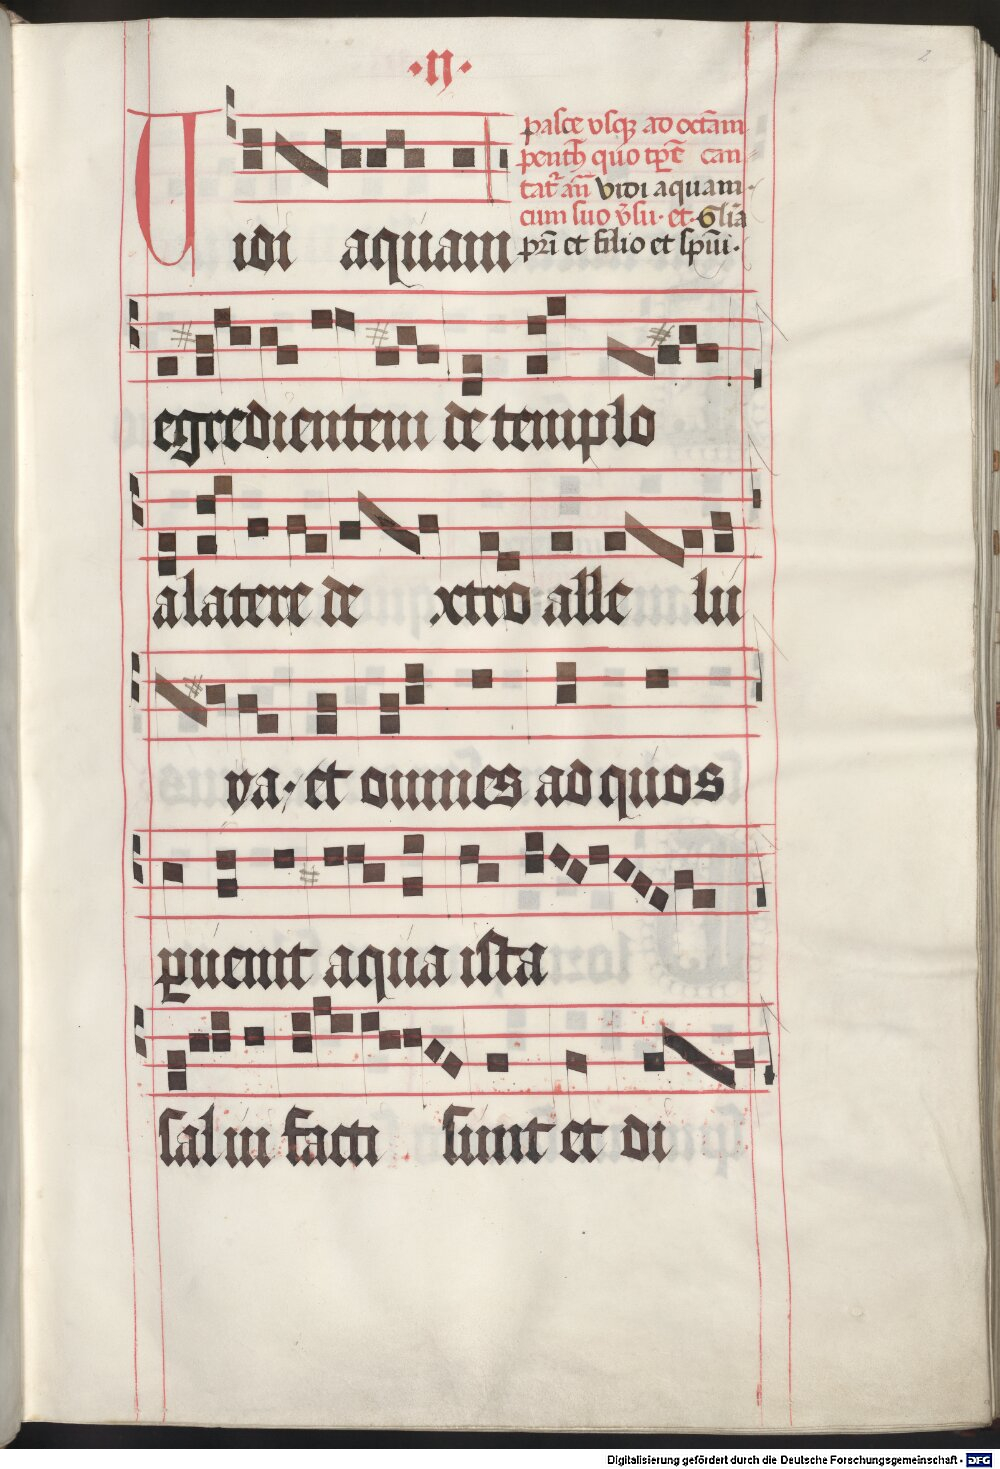 ·II·
2
pasce vsqꝫ ad octām
penth̄ quo tp̄e can
tat᷑ an̄ Vidi aquam·
cum suo v̄su· et· Gl̄ia
pr̄i et filio et sp̄ui·
Vidi aquam
egredientem de templo
a latere de xtro alle lu
ya· et omnes ad quos
ꝑuenit aqua ista
salui facti sunt et di
Digitalisierung gefördert durch die Deutsche Forschungsgemeinschaft - DFG